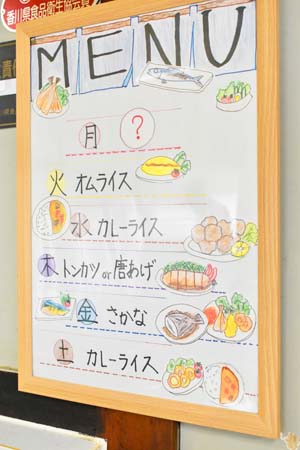 香川県食品衛生協会
MENU
月 ?
火 オムライス
水 カレーライス
木 トンカツor唐あげ
金 さかな
土 カレーライス